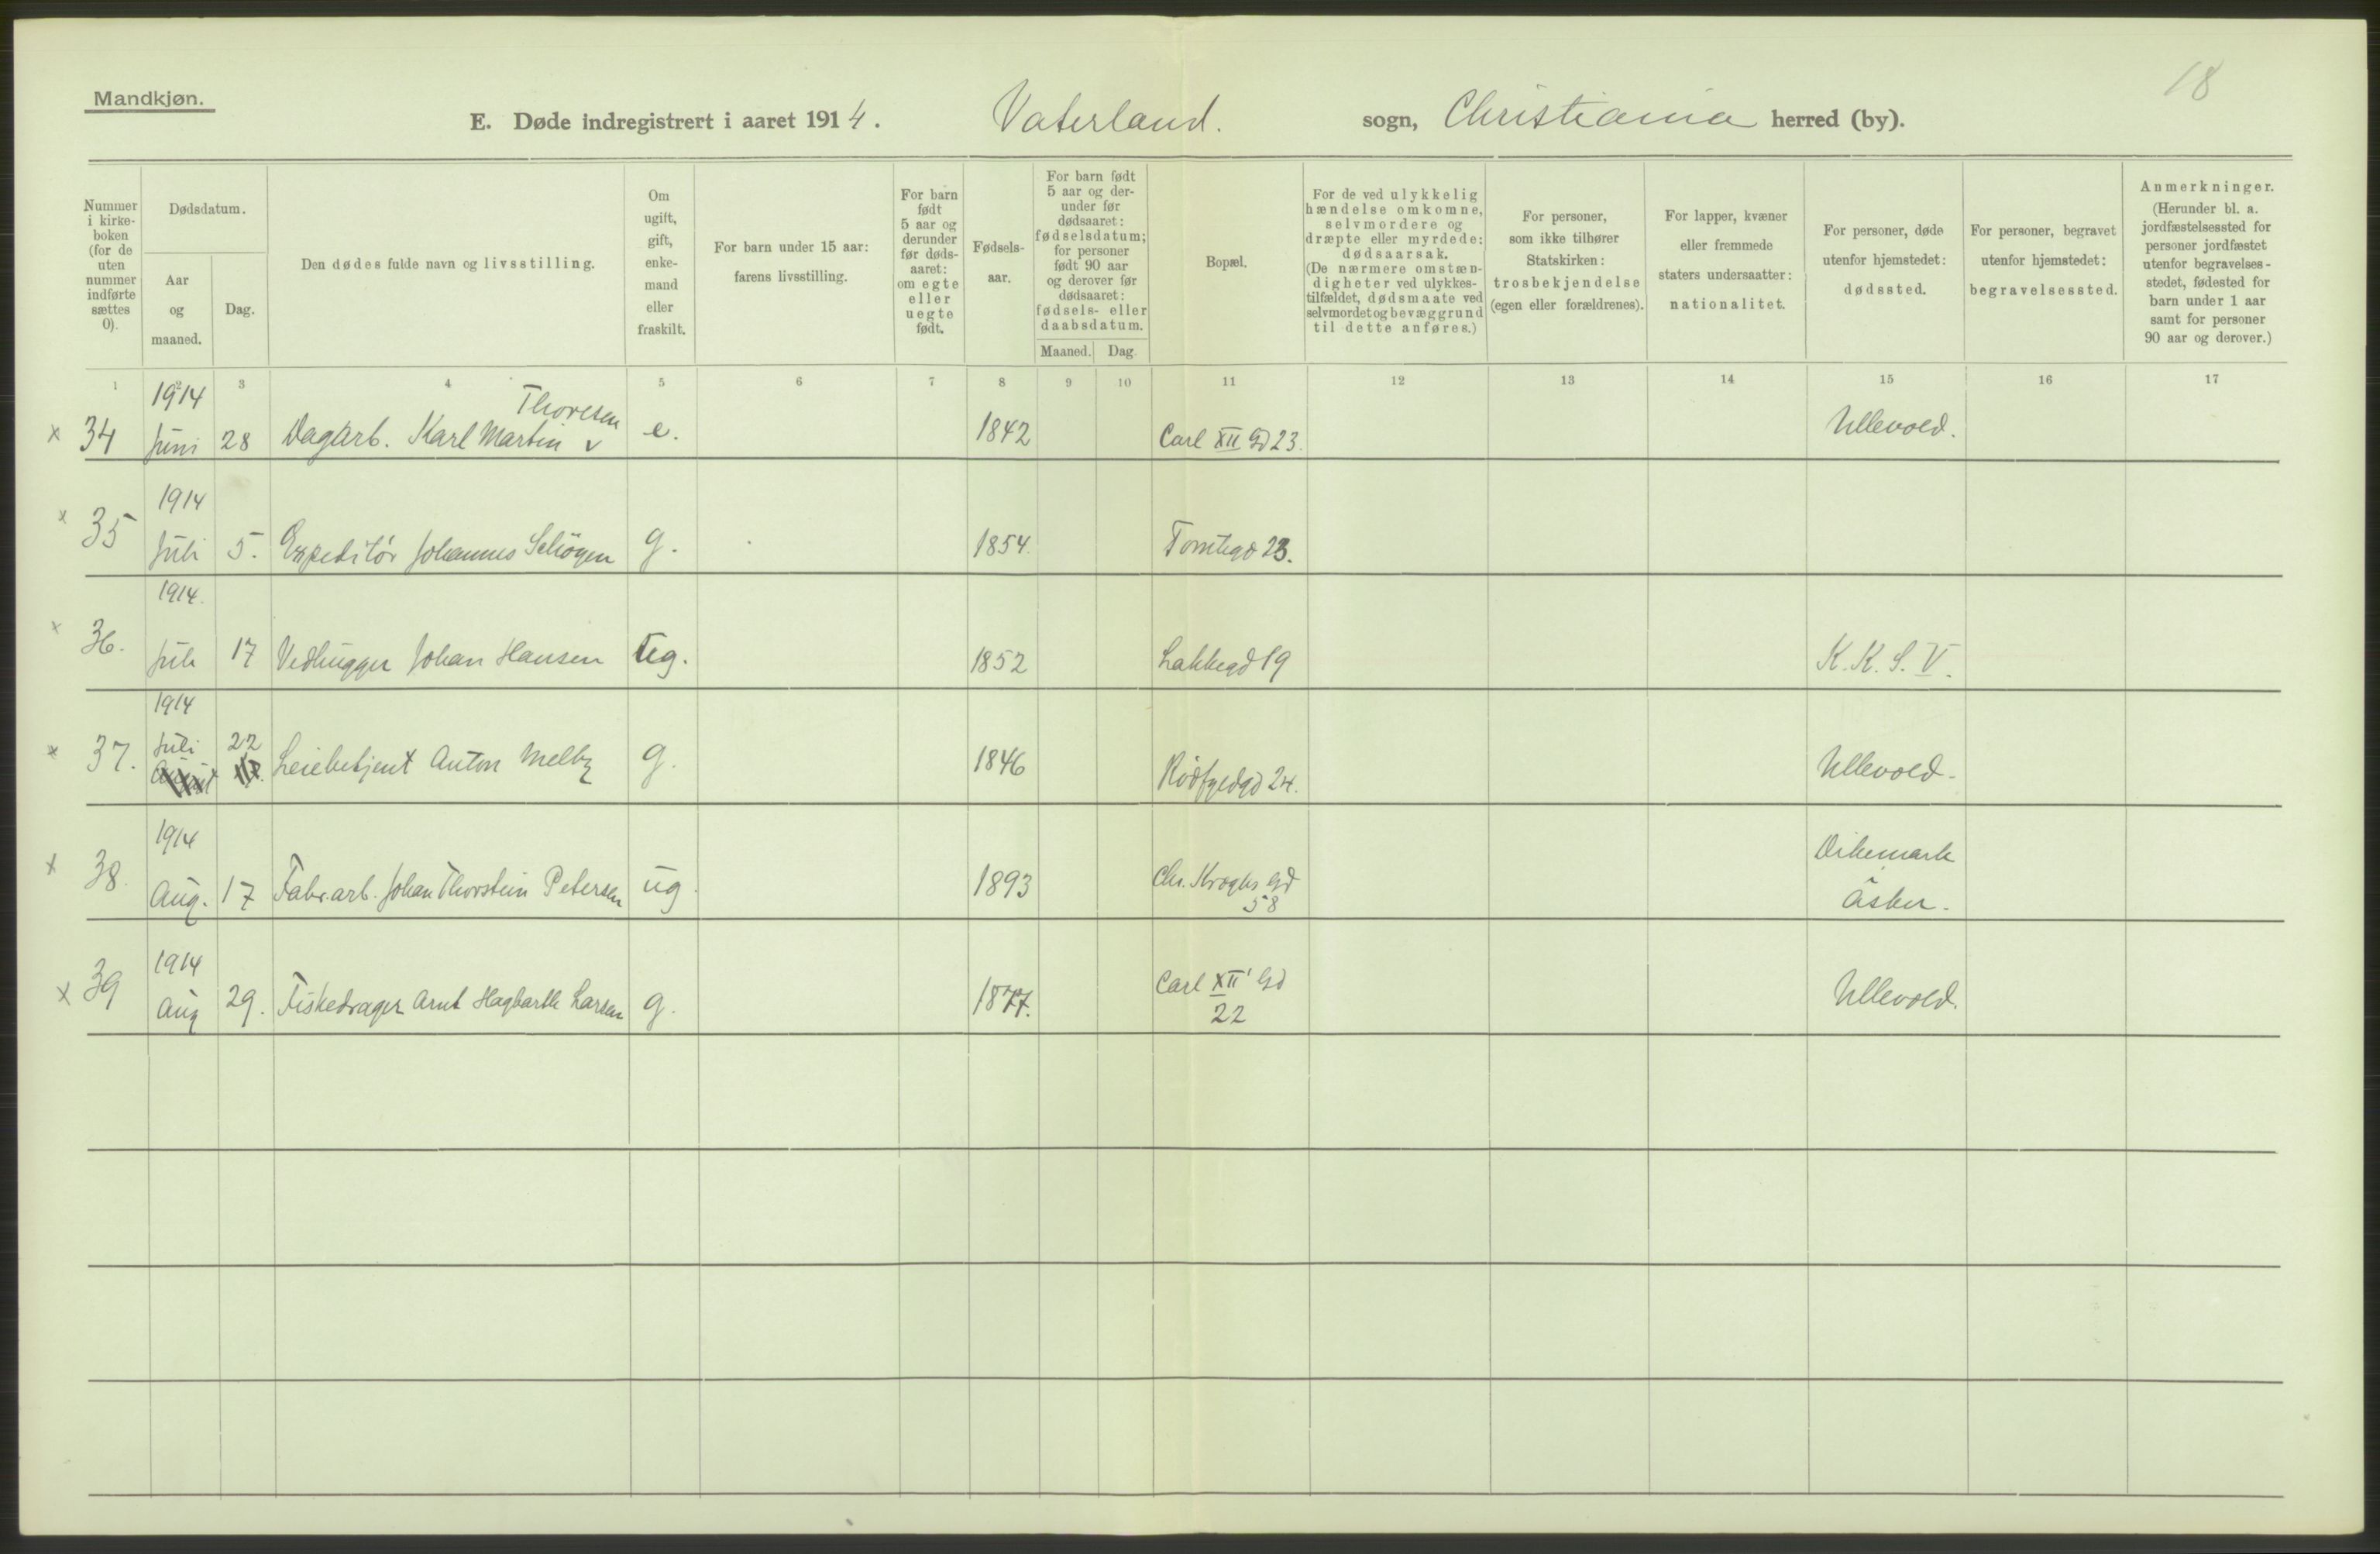 18
Mandkjøn.
E. Døde indregistrert i aaret 1914. Vaterland. sogn, Christiania herred (by).
Nummer
i kirke-
boken
(for de
uten
nummer
indførte
sættes
0).
Dødsdatum.
Aar
og
maaned.
Dag.
Den dødes fulde navn og livsstilling.
Om
ugift,
gift,
enke-
mand
eller
fraskilt.
For barn under 15 aar:
farens livsstilling.
For barn
født
5 aar og
derunder
før døds-
aaret:
om egte
eller
uegte
født.
Fødsels-
aar.
For barn født
5 aar og der-
under før
dødsaaret:
fødselsdatum;
for personer
født 90 aar
og derover før
dødsaaret:
fødsels- eller
daabsdatum.
Maaned. Dag
Bopæl.
For de ved ulykkelig
hændelse omkomne,
selvmordere og
dræpte eller myrdede:
dødsaarsak.
(De nærmere omstæn-
digheter ved ulykkes-
tilfældet, dødsmaate ved
selvmordet og bevæggrund
til dette anføres.)
For personer,
som ikke tilhører
Statskirken:
trosbekjendelse
(egen eller forældrenes).
For lapper, kvæner
eller fremmede
staters undersaatter:
nationalitet.
For personer, døde
utenfor hjemstedet:
dødssted.
For personer, begravet
utenfor hjemstedet:
begravelsessted.
Anmerkninger.
(Herunder bl. a.
jordfæstelsessted for
personer jordfæstet
utenfor begravelses-
stedet, fødested for
barn under 1 aar
samt for personer
90 aar og derover.)
1 2 3 4 5 6 7 8 9 10 11 12 13 14 15 16 17
1914 Thoresen
x 34 Juni 28 Dagarb. Karl Martin v e. 1842 Carl XII Gd 23. Ullevold.
1914
x 35 Juli 5. Expeditör Johannes Schöyen g. 1854. Tomtegd 23.
1914.
x 36. Juli 17 Vedhugger Johan Hansen ug. 1852 Lakkegd 19 K. K. S. V.
1914
x 37. Juli 22 Leiebetjent Anton Melby g. 1846 Rödfyldgd 24. Ullevold.
August 17.
1914 Dikemark
x 38. Aug. 17 Fabr.arb. Johan Thorstein Petersen ug. 1893 Chr. Kroghs Gd Asker.
58
1914
x 39 Aug 29. Fiskedrager Arnt Hagbarth Larsen g. 1877. Carl XII' Gd Ullevold.
22